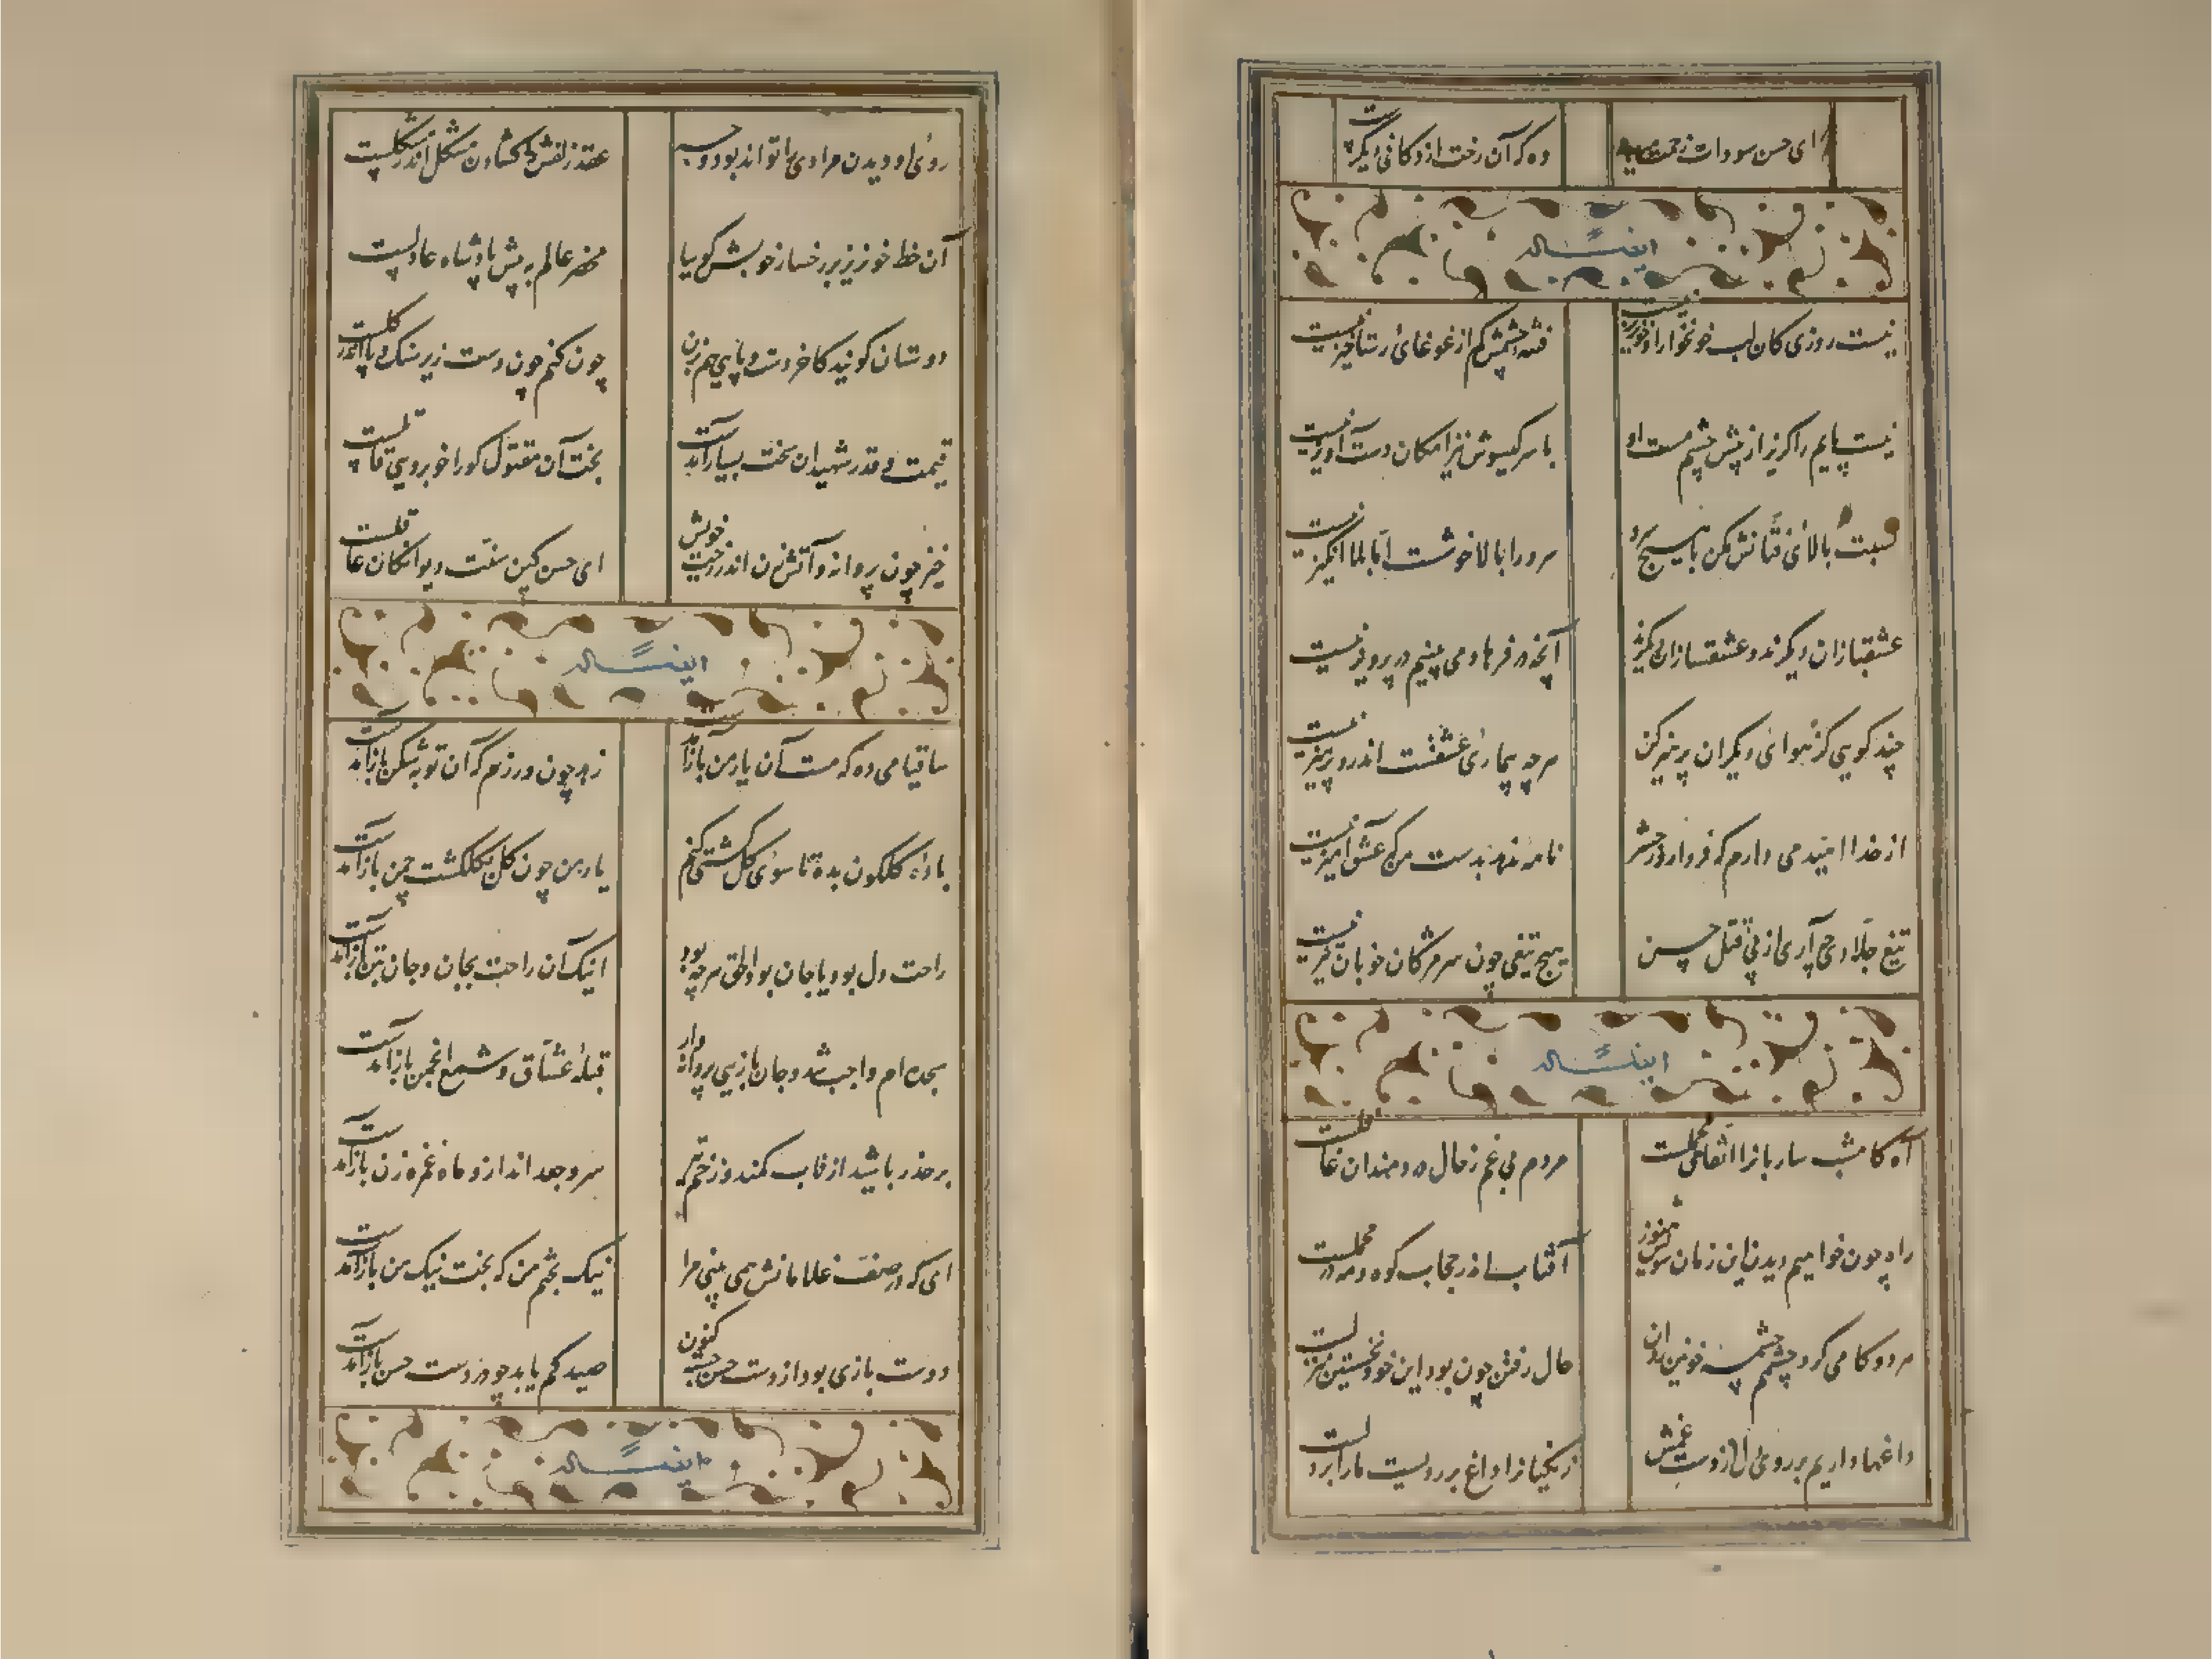 ای حسن سودات زحمت
ده که آن رخت از دکانی دیگرست
ایضا له
نیست روزی کان لب خونخوار او خونریز نیست
فتنه چشمش کم از غوغای رستاخیز نیست
نیست پایم را گریز از پیش چشم مست او
با سر گیسوش نیز امکان دست آویز نیست
نسبت بالای فتانش مکن با هیچ سرو
سرو را بالا خوشست اما بلا انگیز نیست
عشقبازان دیگرند و عشقسازان دیگرند
آنچه در فرهاد می بینم در پرویز نیست
چند گویی کز هوای دیگران پرهیز کن
هر چه بیماری عشقست اندرو پرهیز نیست
از خدا امید می دارم که فردا روز حشر
نامه ندهد بدست من که عشق آمیز نیست
تیغ جلاد چه آری از پی قتل حسن
هیچ تیغی چون سر مژگان خوبان تیز نیست
ایضا له
آه کامشب ساربانرا اتفاق محملست
مردم بی غم ز حال دردمندان غافلست
راه چون خواهیم دیدن این زمان سویش هنوز
آفتاب اندر حجاب کوه و مه در محملست
هر دو گامی گرد چشمم چشمه خونین روان
حال رفتن چون بود این خود نخستین منزلست
داغها داریم بر روی دل از دست غمش
زنگیانرا داغ بر رویست ما را بر دلست
روی او دیدن مرادی را تواند بود وجه
عقد زلفش را گشادن مشکل اندر مشکلست
آن خط خونریز بر رخسار خوبش گوییا
محضر عالم به پیش پادشاه عادلست
دوستان گویند کاخر دست و پایی هم بزن
چون کنم چون دست زیر سنگ و پا اندر گلست
قیمت و قدر شهیدان سخت بسیار آمدست
بخت آن مقتول کو را خوبرویی قاتلست
خیز چون پروانه و آتش زن اندر رخت خویش
ای حسن کین سنت دیوانگان عاقلست
ایضا له
ساقیا می ده که مست آن یار من باز آمدست
زهد چون ورزم که آن توبه شکن باز آمدست
باده گلگون بده تا سوی گل گشتی کنم
یار من چون گل بگلگشت چمن باز آمدست
راحت دل بود یا جان بود الحق هر چه بود
اینک آن راحت بجان و جان بتن باز آمدست
سجده ام واجب شد و جان بازیی پروانه وار
قبله عشاق و شمع انجمن باز آمدست
بر حذر باشید از تاب کمند و زخم تیر
سرو جعد انداز و ماه غمزه زن باز آمدست
ای که در صف غلامانش همی بینی مرا
نیک بختم من که بخت نیک من باز آمدست
دوست بازی بود از دست حسن جسته کنون
صید کم یابد چو در دست حسن باز آمدست
ایضا له